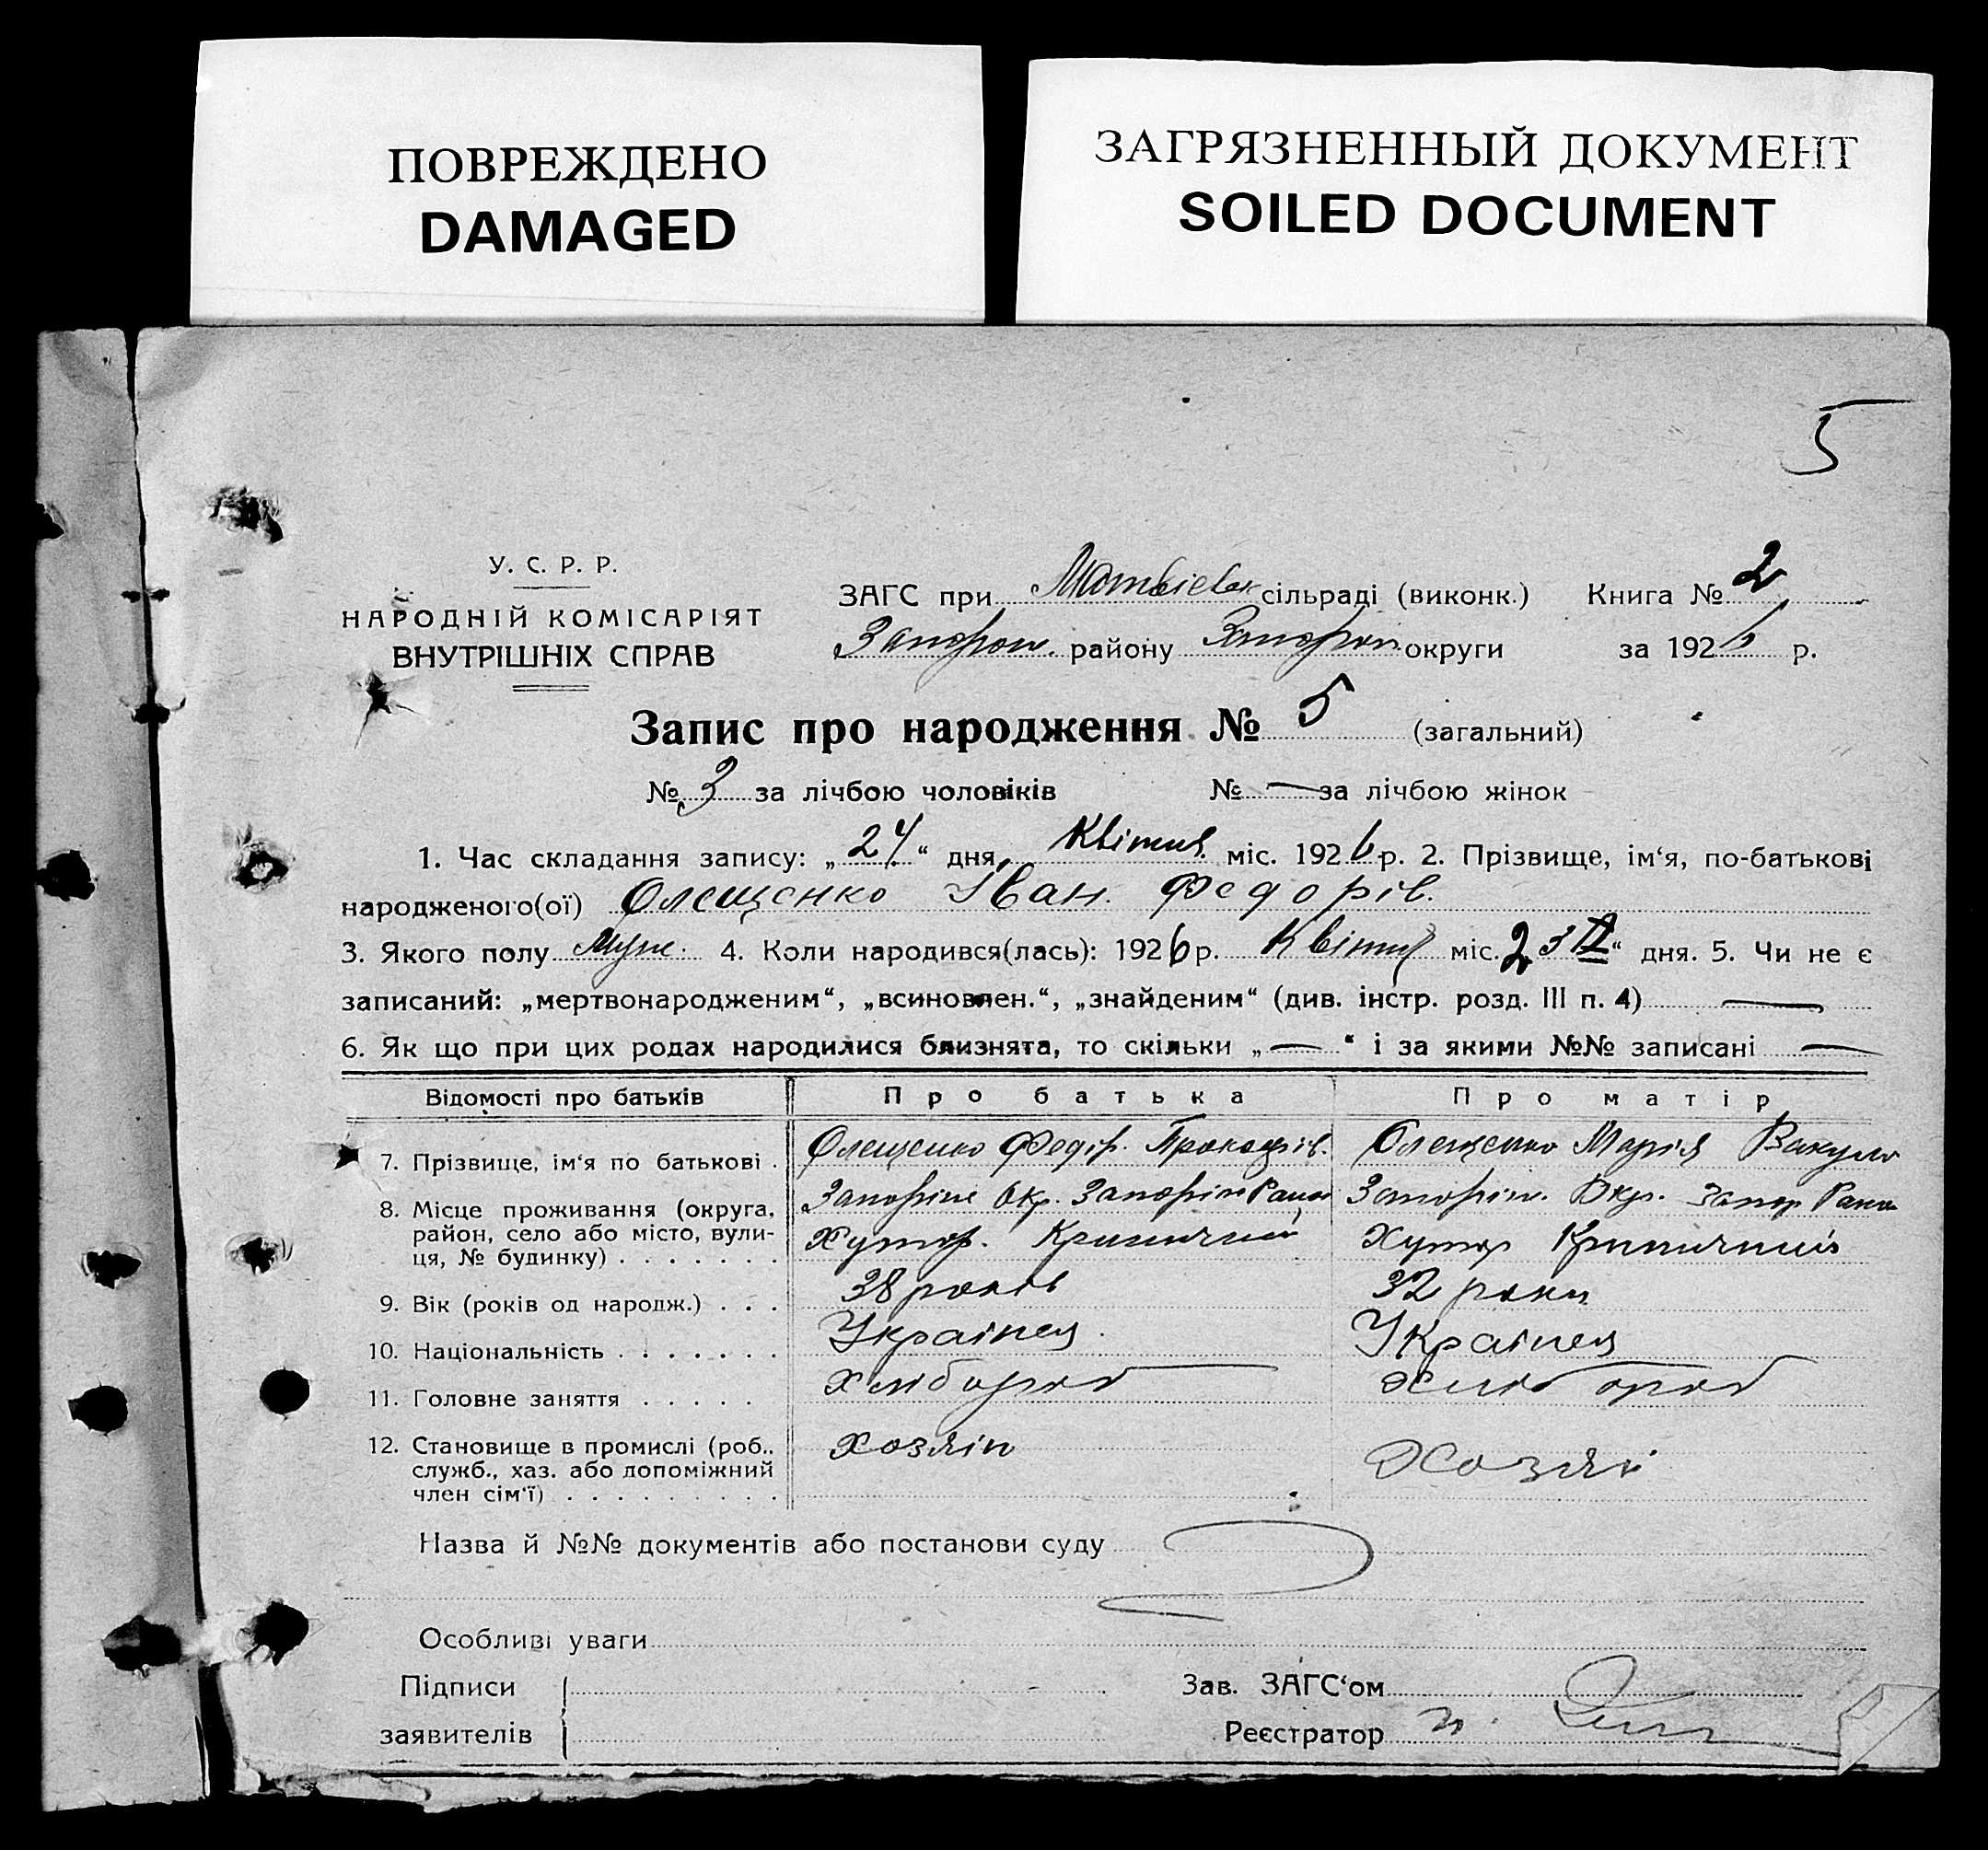 ПОВРЕЖДЕНО
DAMAGED
ЗАГРЯЗНЕННЫЙ ДОКУМЕНТ
SOILED DOCUMENT
5
У. С. Р. Р.
НАРОДНІЙ КОМІСАРІЯТ
ВНУТРІШНІХ СПРАВ
ЗАГС при сільраді (виконк.) Книга № 2
району округи за 1926 р.
Запис про народження № 5 (загальний)
№ 3 за лічбою чоловіків № — за лічбою жінок
1. Час складання запису: „24“ дня Квітня міс. 1926 р. 2. Прізвище, ім‘я, по-батькові
народженого(ої) Олещенко Іван Федорів.
3. Якого полу Муж. 4. Коли народився(лась): 1926 р. Квітня міс. 23 “ дня. 5. Чи не є
записаний: „мертвонародженим“, „всиновлен.“, „знайденим“ (див. інстр. розд. III п. 4) —
6. Як що при цих родах народилися близнята, то скільки „—“ і за якими №№ записані —
Відомості про батьків Про батька Про матір
7. Прізвище, ім‘я по батькові . Олещенко Федір Прокофіїв. Олещенко Марія Вакуло
8. Місце проживання (округа, Запоріж Окр. Запоріж Запоріж. Окр. Запор
район, село або місто, вули- Хутор. Хутор
ця, № будинку) . . . . . . .
9. Вік (років од народж.) . . . 38 років 32 роки
10. Національність . . . . . . . Українец Українец
11. Головне заняття . . . . . Хлібороб Хлібороб
12. Становище в промислі (роб., хозяін Хозяі
служб., хаз. або допоміжний
член сім‘ї) . . . . . . . . .
Назва й №№ документів або постанови суду
Особливі уваги
Підписи Зав. ЗАГС‘ом
заявителів Реєстратор